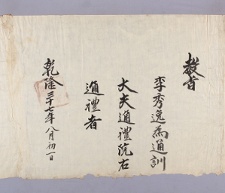 敎旨
李秀逸爲通訓
大夫通禮院右
通禮者
乾隆三十七年八月初一日